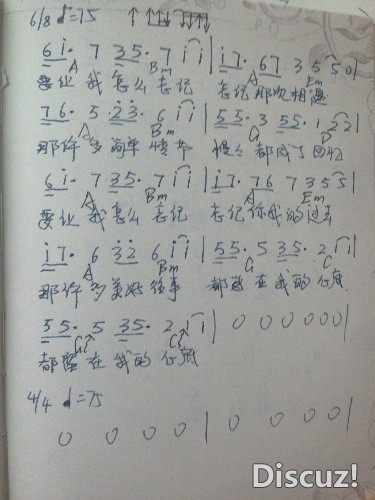 6/8 ♩=75 ↑ ↑↑↓ ↑↓↑↓
6 i· 7 3 5· 7 i i | i 7· 6 7 3 5 5 0 |
A Bm A Em
要让 我 怎么 忘记 忘记 那次 相遇
7 6· 5 2 3· 6 i i | 5 5· 3 5 5· 1 2 2 |
A Bm G D
那许 多 简单 情节 都成了 回忆
6 i· 7 3 5· 7 i i | i 7· 7 6 7 3 5 5 |
A Bm A Em
要让 我 怎么 忘记 忘记 你 我的 过去
i 7· 6 3 2 6 i i | 5 5· 5 3 5· 2 i |
A Bm G C
那许 多 美好 往事 都留 在 我的 心底
5 5· 5 3 5· 2 i | 0 0 0 0 0 0 |
G C
都留 在 我的 心底
4/4 ♩=75
0 0 0 0 | 0 0 0 0 |
Discuz!